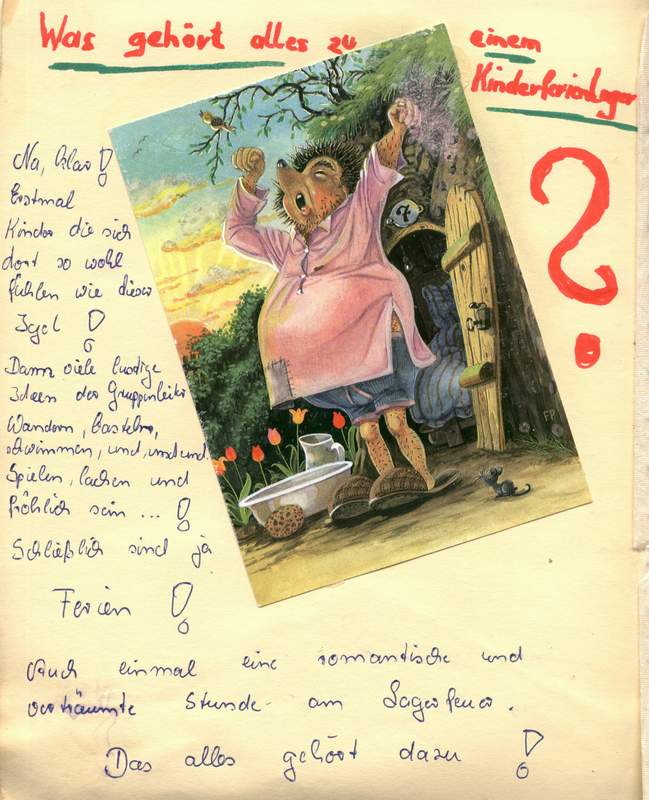 Was gehört alles zu einem
Kinderferienlager
?
Na, klar!
Erstmal
Kinder die sich
dort so wohl
fühlen wie dieser
Igel!
Dann viele lustige
Ideen der Gruppenleiter
Wandern, basteln,
schwimmen, und, und und
Spielen, lachen und
fröhlich sein ... !
Schließlich sind ja
Ferien!
Auch einmal eine romantische und
verträumte Stunde am Lagerfeuer.
Das alles gehört dazu!
7
FP